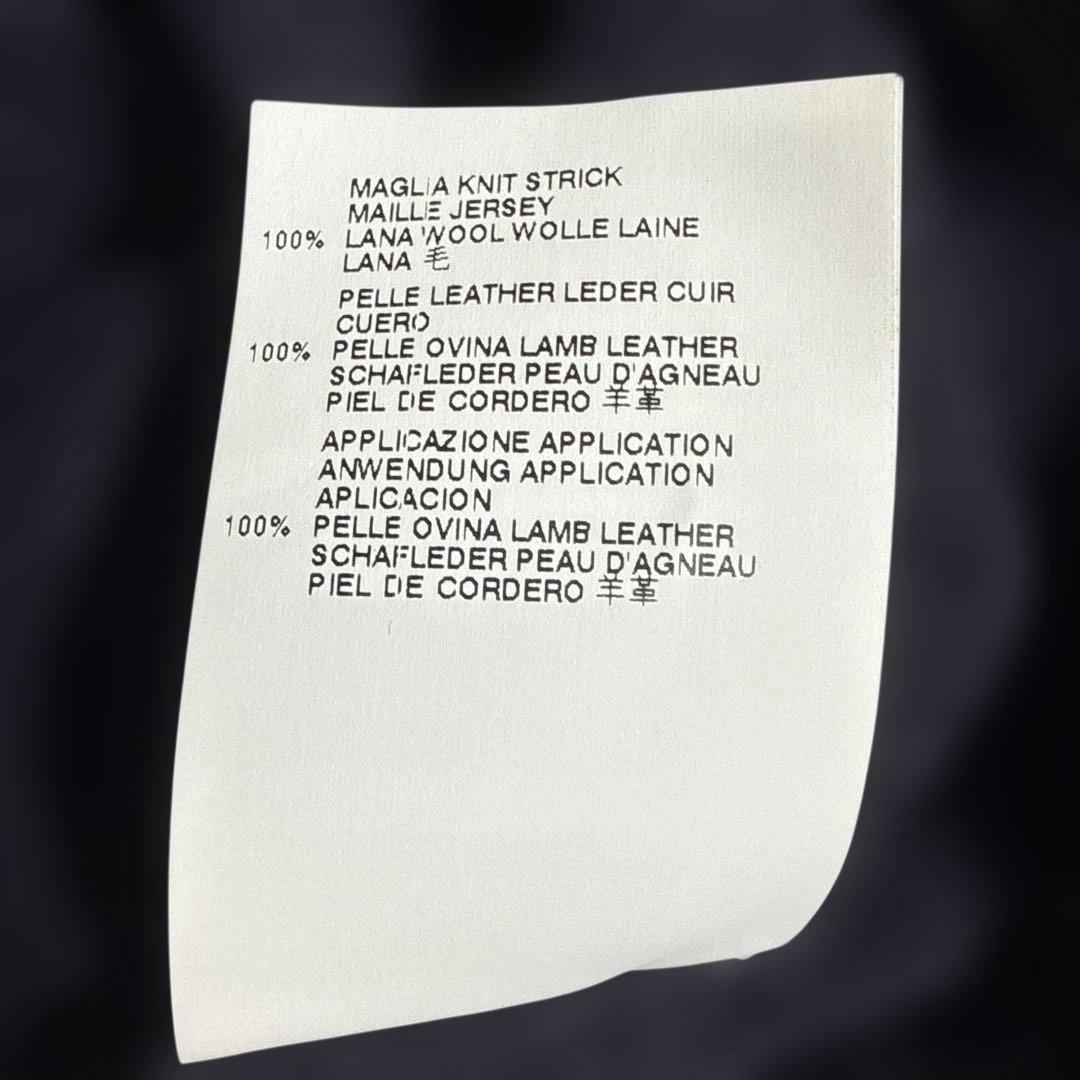 MAGLIA KNIT STRICK
MAILLE JERSEY
100% LANA WOOL WOLLE LAINE
LANA 毛
PELLE LEATHER LEDER CUIR
CUERO
100% PELLE OVINA LAMB LEATHER
SCHAFLEDER PEAU D'AGNEAU
PIEL DE CORDERO 羊革
APPLICAZIONE APPLICATION
ANWENDUNG APPLICATION
APLICACION
100% PELLE OVINA LAMB LEATHER
SCHAFLEDER PEAU D'AGNEAU
PIEL DE CORDERO 羊革